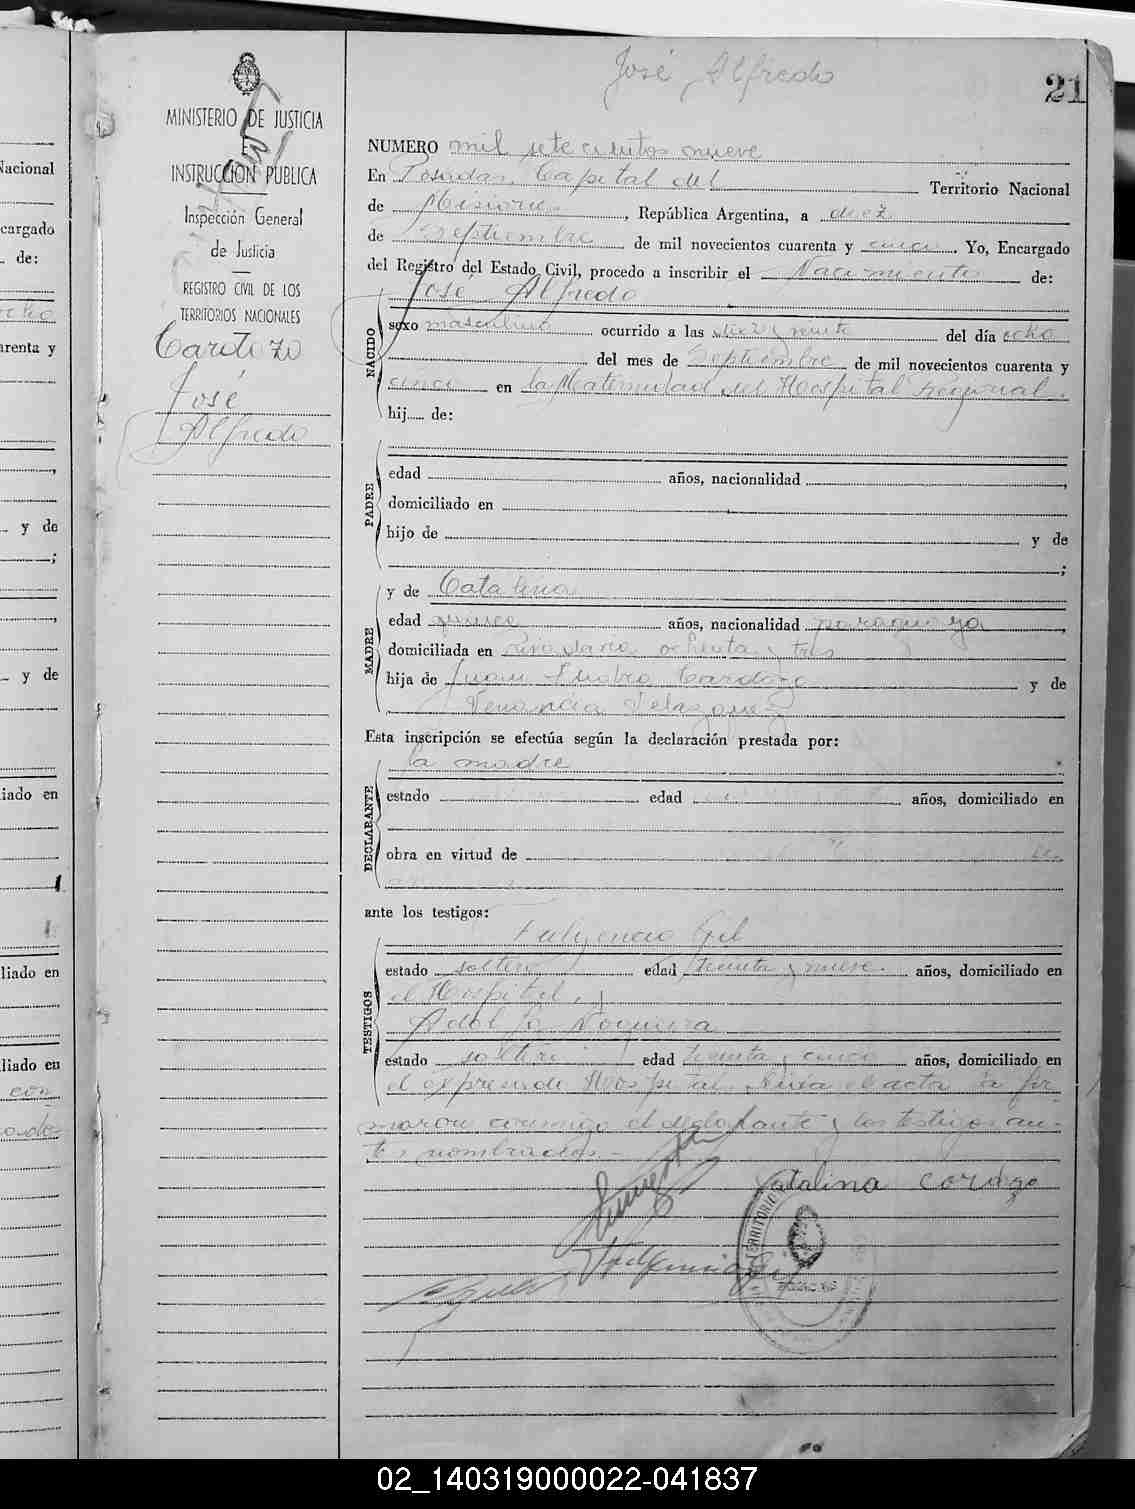 José Alfredo
21
MINISTERIO DE JUSTICIA
E
INSTRUCCIÓN PUBLICA
Inspección General
de Justicia
REGISTRO CIVIL DE LOS
TERRITORIOS NACIONALES
Cardozo
José
Alfredo
NUMERO mil setecientos nueve
En Posadas, Capital del Territorio Nacional
de Misiones, República Argentina, a diez
de Septiembre de mil novecientos cuarenta y cinco Yo, Encargado
del Registro del Estado Civil, procedo a inscribir el Nacimiento de:
José Alfredo
NACIDO
sexo masculino ocurrido a las diez y veinte del día ocho
del mes de Septiembre de mil novecientos cuarenta y
cinco en la Maternidad del Hospital Regional.
hij..... de:
PADRE
edad años, nacionalidad ,
domiciliado en
hijo de y de
;
MADRE
y de Catalina
edad quince años, nacionalidad paraguaya,
domiciliada en Rivadavia ochenta y tres
hija de Juan Cardozo y de
Venancia Velazquez
Esta inscripción se efectúa según la declaración prestada por:
la madre
DECLARANTE
estado edad años, domiciliado en
obra en virtud de
ante los testigos:
Fulgencio Gil
TESTIGOS
estado soltero edad treinta y nueve años, domiciliado en
el Hospital, y
Adolfo Noguera
estado soltero edad treinta y cinco años, domiciliado en
el expresado Hospital. Leída el acta la fir
maron conmigo el declarante y los testigos an-
tes nombrados.-
Catalina cordozo
Fulgencio Gil
TERRITORIO
Nacional
cargado
de:
ocho
arenta y
y de
;
y de
iado en
1
liado en
liado en
con
02_140319000022-041837